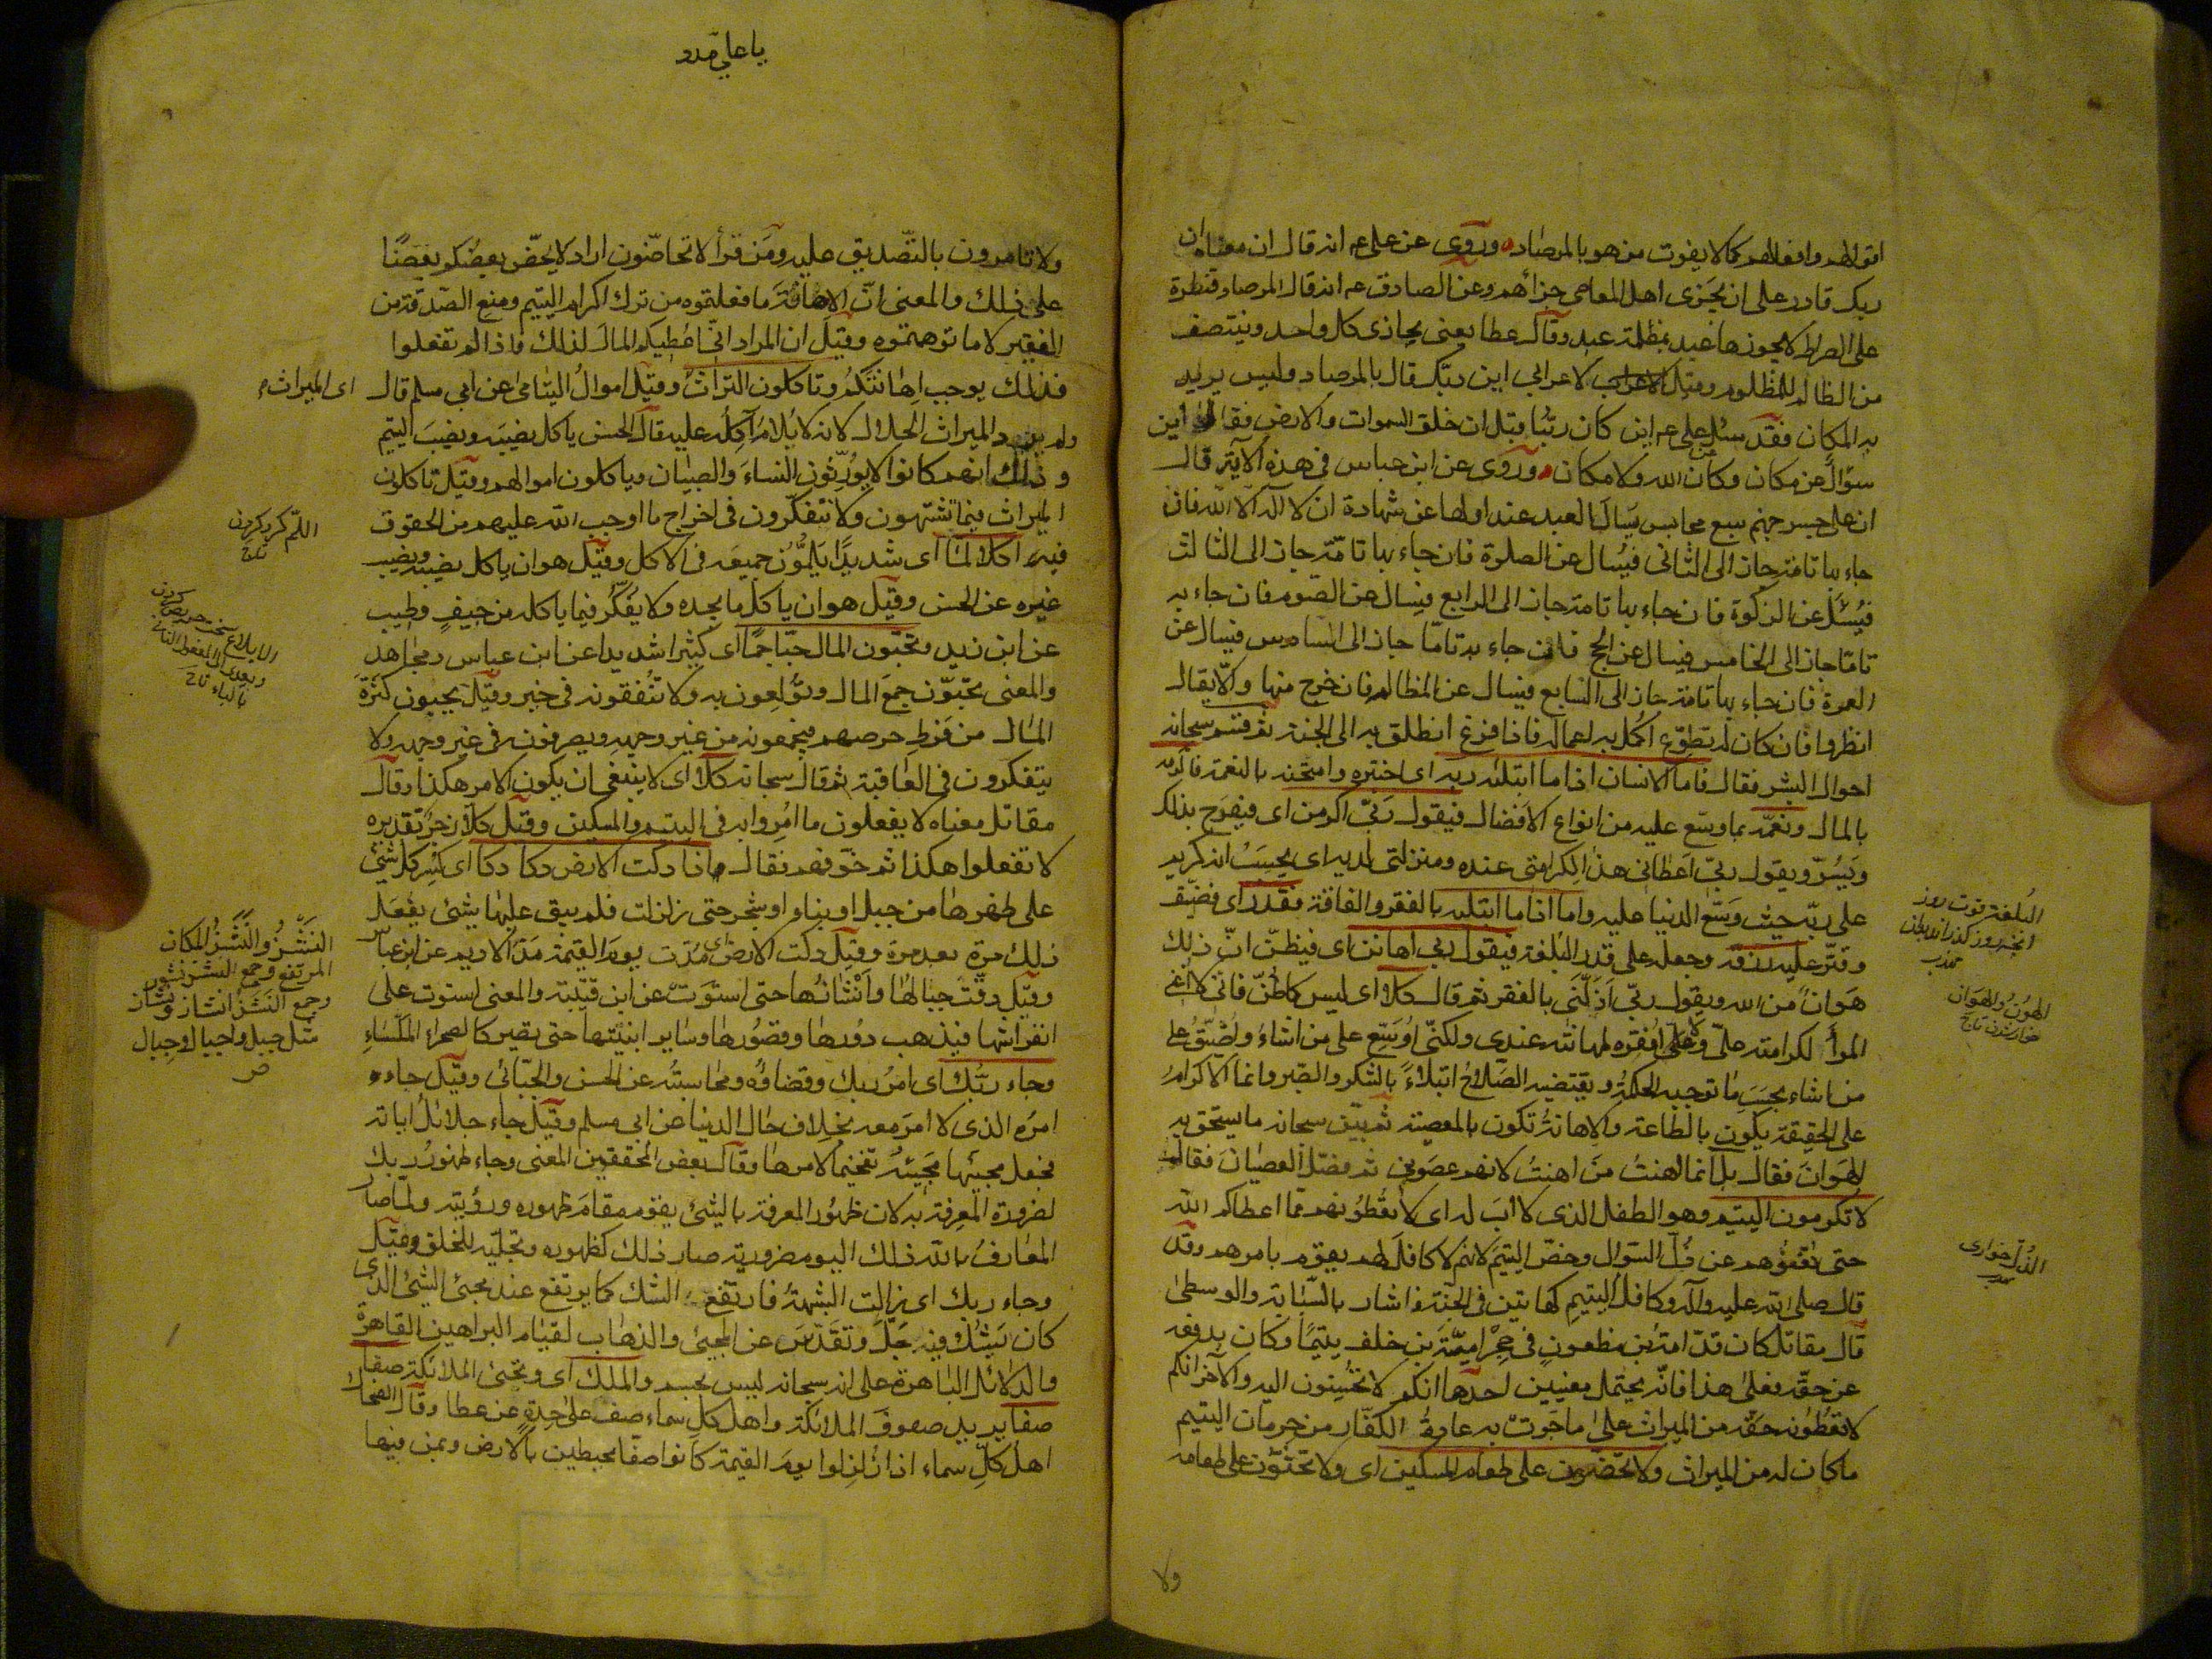 اقوالهم وافعالهم كما لا يفوت من هو بالمرصاد وروى عن على ع انه قال ان معناه ان
ربك قادر على ان يجزى اهل المعاصى جزاءهم وعن الصادق ع انه قال المرصاد قنطرة
على الصراط لا يجوزها عبد بمظلمة عبد وقال عطا يعنى يجازى كل واحد وينتصف
من الظالم للمظلوم وقيل لاعرابى اين ربك قال بالمرصاد وليس يريد
به المكان فقد سئل على ع اين كان ربنا قبل ان خلق السموات والارض فقال اين
سؤال عن مكان وكان الله ولا مكان وروى عن ابن عباس فى هذه الآية قال
ان على جسر جهنم سبع محابس يسأل العبد عند اولها عن شهادة ان لا اله الا الله فان
جاء بها تامة جاز الى الثانى فيسأل عن الصلوة فان جاء بها تامة جاز الى الثالث
فيسئل عن الزكوة فان جاء بها تامة جاز الى الرابع فيسأل عن الصوم فان جاء به
تاما جاز الى الخامس فيسال عن الحج فان جاء به تاما جاز الى السادس فيسال عن
العمرة فان جاء بها تامة جاز الى السابع فيسال عن المظالم فان خرج منها والا يقال
انظروا فان كان له تطوع اكمل به اعماله فاذا فرغ انطلق به الى الجنة ثم قسم سبحانه
احوال البشر فقال فاما الانسان اذا ما ابتلاه ربه اى اختبره وامتحنه بالنعمة فاكرمه
بالمال ونعمه بما وسع عليه من انواع الافضال فيقول ربى اكرمن اى فيفرح بذلك
ويسر ويقول ربى اعطانى هذا لكرامتى عنده ومنزلتى لديه اى يحسب انه كريم
على ربه حيث وسع الدنيا عليه واما اذا ما ابتليه بالفقر والفاقة فقدر اى فضيق
وقتر عليه رزقه وجعله على قدر البلغة فيقول ربى اهانن اى فيظن ان ذلك
هوان من الله ويقول ربى اذلنى بالفقر ثم قال كلا اى ليس كما ظن فانى لا اغنى
المرأ لكرامته على ولا افقره لمهانته عندى ولكنى اوسع على من اشاء واضيق على
من اشاء بحسب ما توجبه الحكمة ويقتضيه الصلاح ابتلاء بالشكر والصبر وانما الاكرام
على الحقيقة يكون بالطاعة والاهانة تكون بالمعصية ثم بين سبحانه ما يستحق به
الهوان فقال بل انما اهنت من اهنت لانهم عصونى ثم فصل العصيان فقال
لا تكرمون اليتيم وهو الطفل الذى لا اب له اى لا تعطونهم مما اعطاكم الله
حتى تغنوهم عن ذل السؤال وخص اليتيم لانهم لا كافل لهم يقوم بامرهم وقد
قال صلى الله عليه وآله وكافل اليتيم كهاتين فى الجنة واشار بالسبابة والوسطى
قال مقاتل كان قدامة بن مظعون فى حجر امية بن خلف يتيما وكان يدفعه
عن حقه فعلى هذا فانه يحتمل معنيين احدها انكم لا تحسنون اليه والآخر انكم
لا تعطونه حقه من الميراث على ما جرت به عادة الكفار من حرمان اليتيم
ما كان له من الميراث ولا تحضون على طعام المسكين اى ولا تحثون على طعامه
ولا
البلغة قوت روز
مهذب
الهون والهوان
خوار شدن تاج
الذل خوارى
مهذب
يا على مدد
ولا تامرون بالتصديق عليه ومن قرأ لا تحاضون اراد لا يحض بعضكم بعضا
على ذلك والمعنى ان الاهانة ما فعلتموه من ترك اكرام اليتيم ومنع الصدقة من
الفقير لا ما توهمتموه وقيل ان المراد انى اعطيكم المال لذلك فاذا لم تفعلوا
فذلك يوجب اهانتكم وتاكلون التراث وقيل اموال اليتامى عن ابى مسلم قال
ولم يرد الميراث الحلال لانه لا يلام آكله عليه قال الحسن ياكل نصيبه ونصيب اليتيم
وذلك انهم كانوا لا يورثون النساء والصبيان وياكلون اموالهم وقيل تاكلون
الميراث فيما تشتهون ولا تتفكرون فى اخراج ما اوجب الله عليهم من الحقوق
فيه اكلا لما اى شديدا يلمون جميعه فى الاكل وقيل هو ان ياكل نصيبه ونصيب
غيره عن الحسن وقيل هو ان ياكل ما يجده ولا يفكر فيما ياكله من خبيث وطيب
عن ابن زيد وتحبون المال حبا جما اى كثيرا شديدا عن ابن عباس ومجاهد
والمعنى تحبون جمع المال وتولعون به ولا تنفقونه فى خير وقيل يحبون كثرة
المال من فرط حرصهم فيجمعونه من غير وجهه ويصرفونه فى غير وجهه ولا
يتفكرون فى العاقبة ثم قال سبحانه كلا اى لا ينبغى ان يكون الامر هكذا وقال
مقاتل معناه لا يفعلون ما امروا به فى اليتيم والمسكين وقيل كلا زجر تقديره
لا تفعلوا هكذا ثم خوفهم فقال اذا دكت الارض دكا دكا اى كسر كل شئ
على ظهرها من جبل او بناء او شجر حتى زلزلت فلم يبق عليها شئ يفعل
ذلك مرة بعد مرة وقيل دكت الارض اى مدت يوم القيمة مد الاديم عن ابن عباس
وقيل دقت جبالها وانشازها حتى استوت عن ابن قتيبة والمعنى استوت على
انفراشها فيذهب دورها وقصورها وساير ابنيتها حتى تصير كالصحراء الملساء
وجاء ربك اى امر ربك وقضاؤه ومحاسبته عن الحسن والجبائى وقيل جاء
امره الذى لا امر معه بخلاف حال الدنيا عن ابى مسلم وقيل جاء جلائل اياته
فجعل مجيئها مجيئه تفخيما لامرها وقال بعض المحققين المعنى وجاء ظهور ربك
لضرورة المعرفة به لان ظهور المعرفة بالشئ يقوم مقام ظهوره ورؤيته ولما صار
المعارف بالله ذلك اليوم ضرورية صار ذلك كظهوره وتجليه للخلق وقيل
وجاء ربك اى زالت الشبهة فارتفع الشك كما يرتفع عند مجئ الشئ الذى
كان يشك فيه جل وتقدس عن المجيئ والذهاب لقيام البراهين القاهرة
والدلائل الباهرة على انه سبحانه ليس بجسم والملك اى وتجئ الملائكة صفا
صفا يريد صفوف الملائكة واهل كل سماء صف على حدة عن عطا وقال الضحاك
اهل كل سماء اذا زلزلوا يوم القيمة كانوا صفا محيطين بالارض وبمن فيها
اى الميراث
اللم كرد كردن
تاج
النشز والنشز المكان
المرتفع وجمع النشز نشوز
وجمع النشز انشاز ونشاز
مثل جبل واجبال وجبال
ص